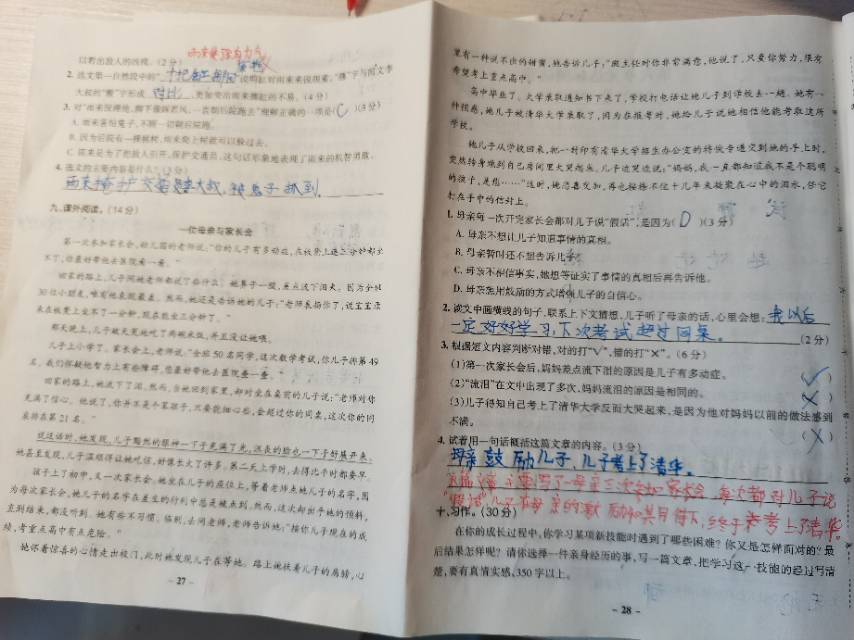 以看出敌人的凶残。(2分)
2. 选文第一自然段中的"
大叔的"
字形成 对比
3.
(C)(3分)
A. 雨来害怕鬼子,不顾一切朝后院跑。
B. 因为后院有一棵桃树,雨来爬上树就可以躲过去。
C. 雨来是为了把敌人引开,保护交通员,这句话形象地表现了雨来的机智勇敢。
4. 选文的主要内容是什么?
雨来掩护交
被鬼子抓到.
九、课外阅读。(14分)
一位母亲与家长会
第一次参加家长会,幼儿园的老师说:"你的儿子有多动症,在板凳上连三分钟都坐
不了,你最好带他去医院看一看。"
回家的路上,儿子问她老师都说了些什么。她鼻子一酸,差点流下泪来。因为全班
30位小朋友,唯有他表现最差。然而,她还是告诉她的儿子:"老师表扬你了,说宝宝原
来在板凳上坐不了一分钟,现在能坐三分钟了。"
那天晚上,儿子破天荒地吃了两碗米饭,并且没让她喂。
儿子上小学了。家长会上,老师说:"全班50名同学,这次数学考试,你儿子排第49
名。我们怀疑他智力上有些障碍,您最好带他去医院查一查。"
回家的路上,她流下了泪。然而,当她回到家里,却对坐在桌前的儿子说:"老师对你
充满了信心。他说了,你并不是个笨孩子,只要能细心些,会超过你的同桌,这次你的同
桌排在第21名。"
说这话时,她发现,儿子黯然的眼神一下子充满了光,沮丧的脸也一下子舒展开来。
她甚至发现,儿子温顺得让她吃惊,好像长大了许多。第二天上学时,去得比平时都要早。
孩子上了初中,又一次家长会。她坐在儿子的座位上,等着老师点她儿子的名字,因
为每次家长会,她儿子的名字在差生的行列中总是被点到。然而,这次却出乎她的预料,
直到结束,都没听到。她有些不习惯。临别,去问老师,老师告诉她:"按你儿子现在的成
绩,考重点高中有点危险。"
她怀着惊喜的心情走出校门,此时她发现儿子在等她。路上她扶着儿子的肩膀,心
- 27 -
里有一种说不出的甜蜜,她告诉儿子:"班主任对你非常满意,他说了,只要你努力,很有
希望考上重点高中。"
高中毕业了。大学录取通知书下来了,学校打电话让她儿子到学校去一趟。她有一
种预感,她儿子被清华大学录取了,因为在报考时,她给儿子说她相信他能考取这所
学校。
她儿子从学校回来,把一封印有清华大学招生办公室的特快专递交到她的手上时,
突然转身跑到自己房间里大哭起来。儿子边哭边说:"妈妈,我一直都知道我不是个聪明
的孩子,是您……"这时,她悲喜交加,再也按捺不住十几年来凝聚在心中的泪水,任它
打在手中的信封上。
1. 母亲每一次开完家长会都对儿子说"假话",是因为( D )(3分)
A. 母亲不想让儿子知道事情的真相。
B. 母亲暂时还不想告诉儿子
C. 母亲不相信事实,她想等证实了事情的真相后再告诉他。
D. 母亲想用鼓励的方式增强儿子的自信心。
2. 读文中画横线的句子,联系上下文猜想,儿子听了母亲的话,心里会想:我以后
一定好好学习,下次考试超过同桌。(2分)
3. 根据短文内容判断对错,对的打"√",错的打"×"。(6分)
(1)第一次家长会后,妈妈差点流下泪的原因是儿子有多动症。(√)
(2)"流泪"在文中出现了多次,妈妈流泪的原因是相同的。(×)
(3)儿子得知自己考上了清华大学反而大哭起来,是因为他对妈妈以前的做法感到
不满。(×)
4. 试着用一句话概括这篇文章的内容。(3分)
母亲鼓励儿子,儿子考上了清华。
这篇文章主要写了一母亲三次参加家长会,每次都对儿子说
"假话",儿子在母亲的激励和
下,终于考上了清华。
十、习作。(30分)
在你的成长过程中,你学习某项新技能时遇到了哪些困难?你又是怎样面对的?最
后结果怎样呢?请你选择一件亲身经历的事,写一篇文章,把学习这一技能的经过写清
楚,要有真情实感,350字以上。
- 28 -